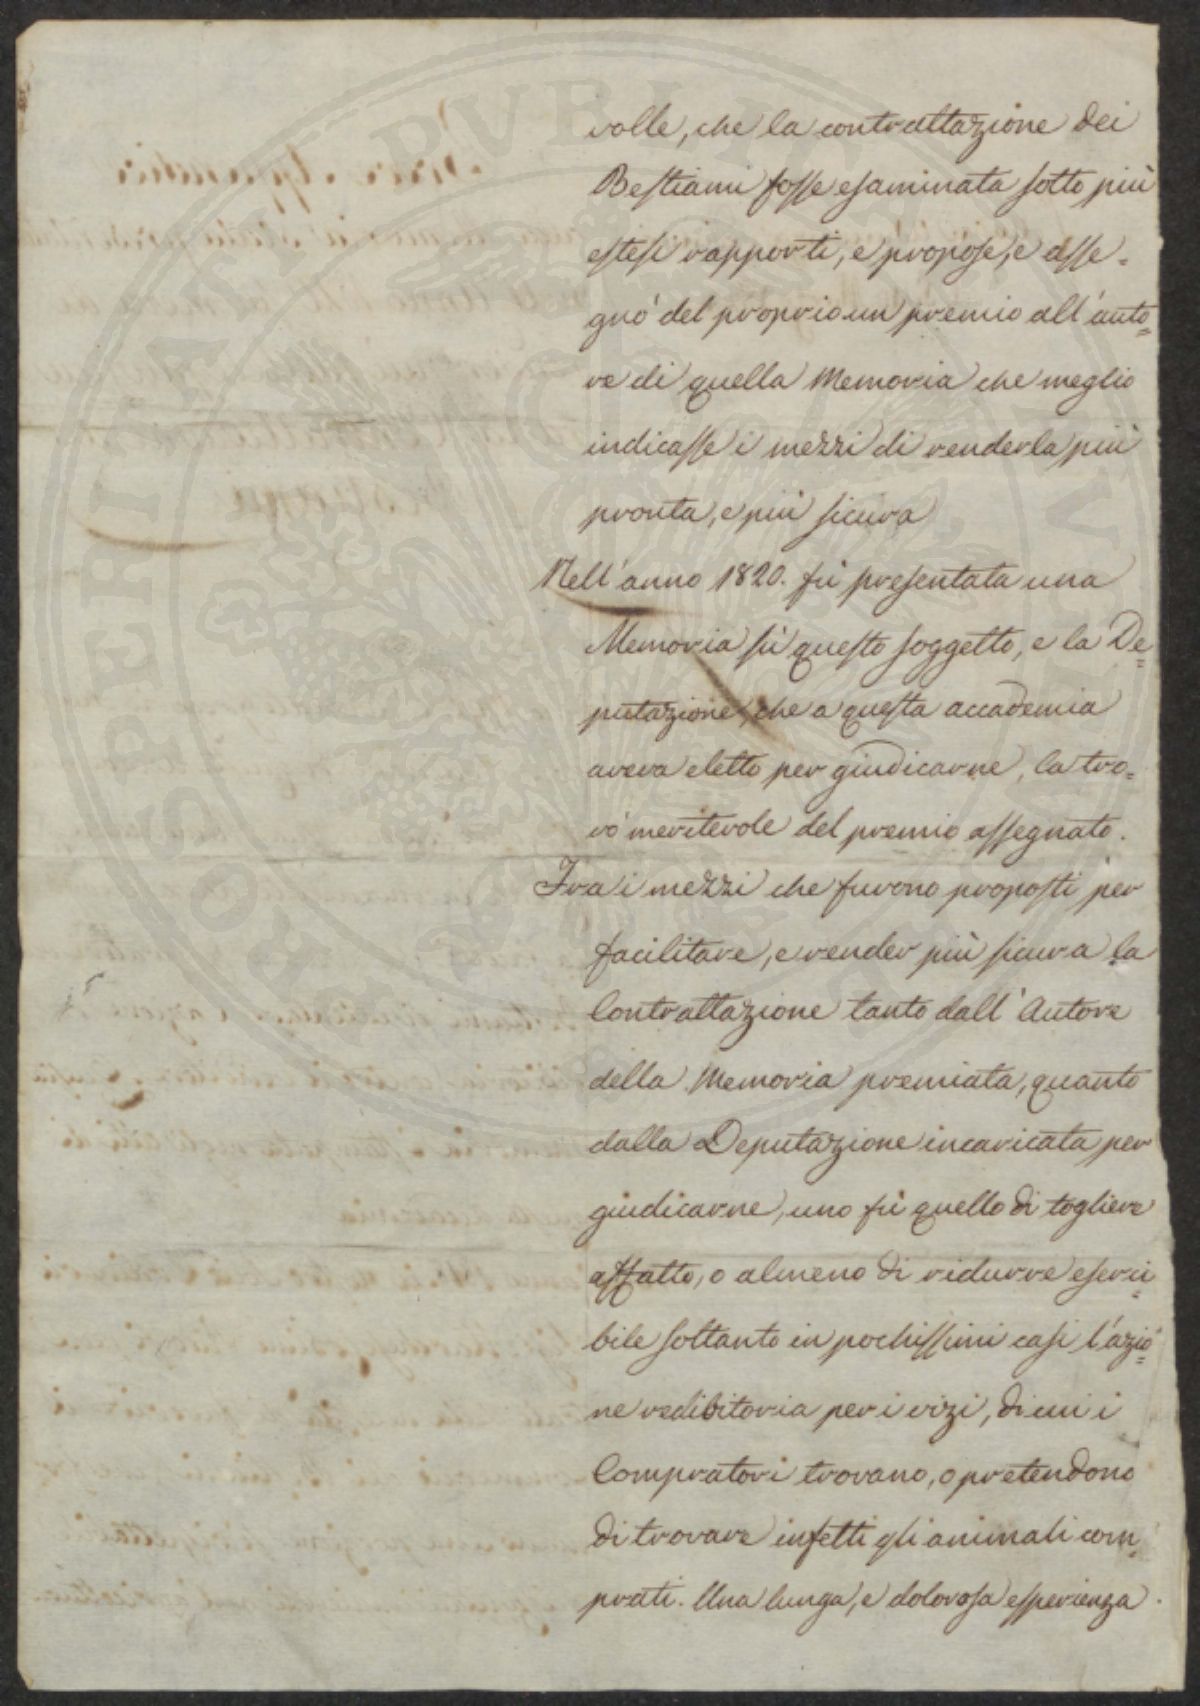 volle, che la contrattazione dei
Bestiami fosse esaminata sotto più
estesi rapporti, e propose, e asse=
gnò del proprio un premio all'auto=
re di quella Memoria che meglio
indicasse i mezzi di renderla più
pronta, e più sicura
Nell'anno 1820. fù presentata una
Memoria sù questo soggetto, e la De=
putazione, che a questa accademia
aveva eletto per giudicarne, la tro=
vò meritevole del premio assegnato.
Fra i mezzi che furono proposti per
facilitare, e render più sicura la
Contrattazione tanto dall'Autore
della Memoria premiata, quanto
dalla Deputazione incaricata per
giudicarne, uno fù quello di togliere
affatto, o almeno di ridurre eserci=
bile soltanto in pochissimi casi l'azio=
ne redibitoria per i vizi, di cui i
Compratori trovano, o pretendono
di trovare infetti gli animali com=
prati. Una lunga, e dolorosa esperienza